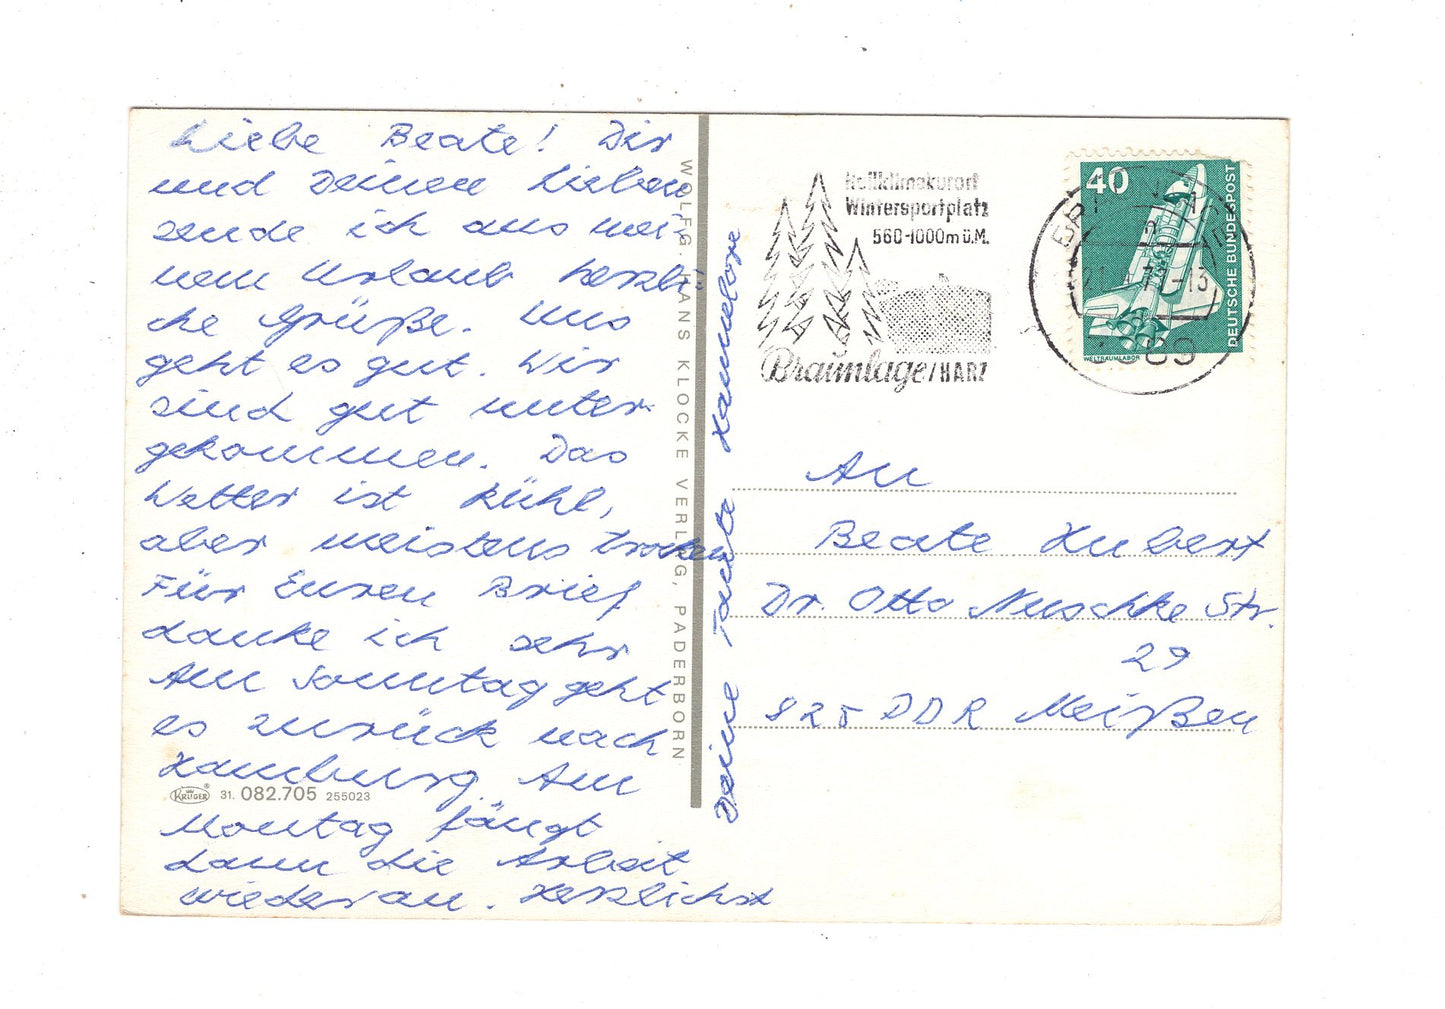 Liebe Beate! Dir
und Deinen Lieben
sende ich aus mei-
nem Urlaub herzli-
che Grüße. Uns
geht es gut. Wir
sind gut unter-
gekommen. Das
Wetter ist kühl,
aber meistens trocken
Für Euren Brief
danke ich sehr
Am Sonntag geht
es zurück nach
Hamburg. Am
Montag fängt
dann die Arbeit
wieder an. Herzlichst
Deine Tante Hannelore
KRÜGER 31. 082.705 255023
WOLFG. HANS KLOCKE VERLAG, PADERBORN
Heilklimakurort
Wintersportplatz
560-1000m ü.M.
Braunlage/HARZ
40
DEUTSCHE BUNDESPOST
WELTRAUMLABOR
An
Beate Hubert
Dr. Otto Nuschke Str.
29
825 DDR Meißen